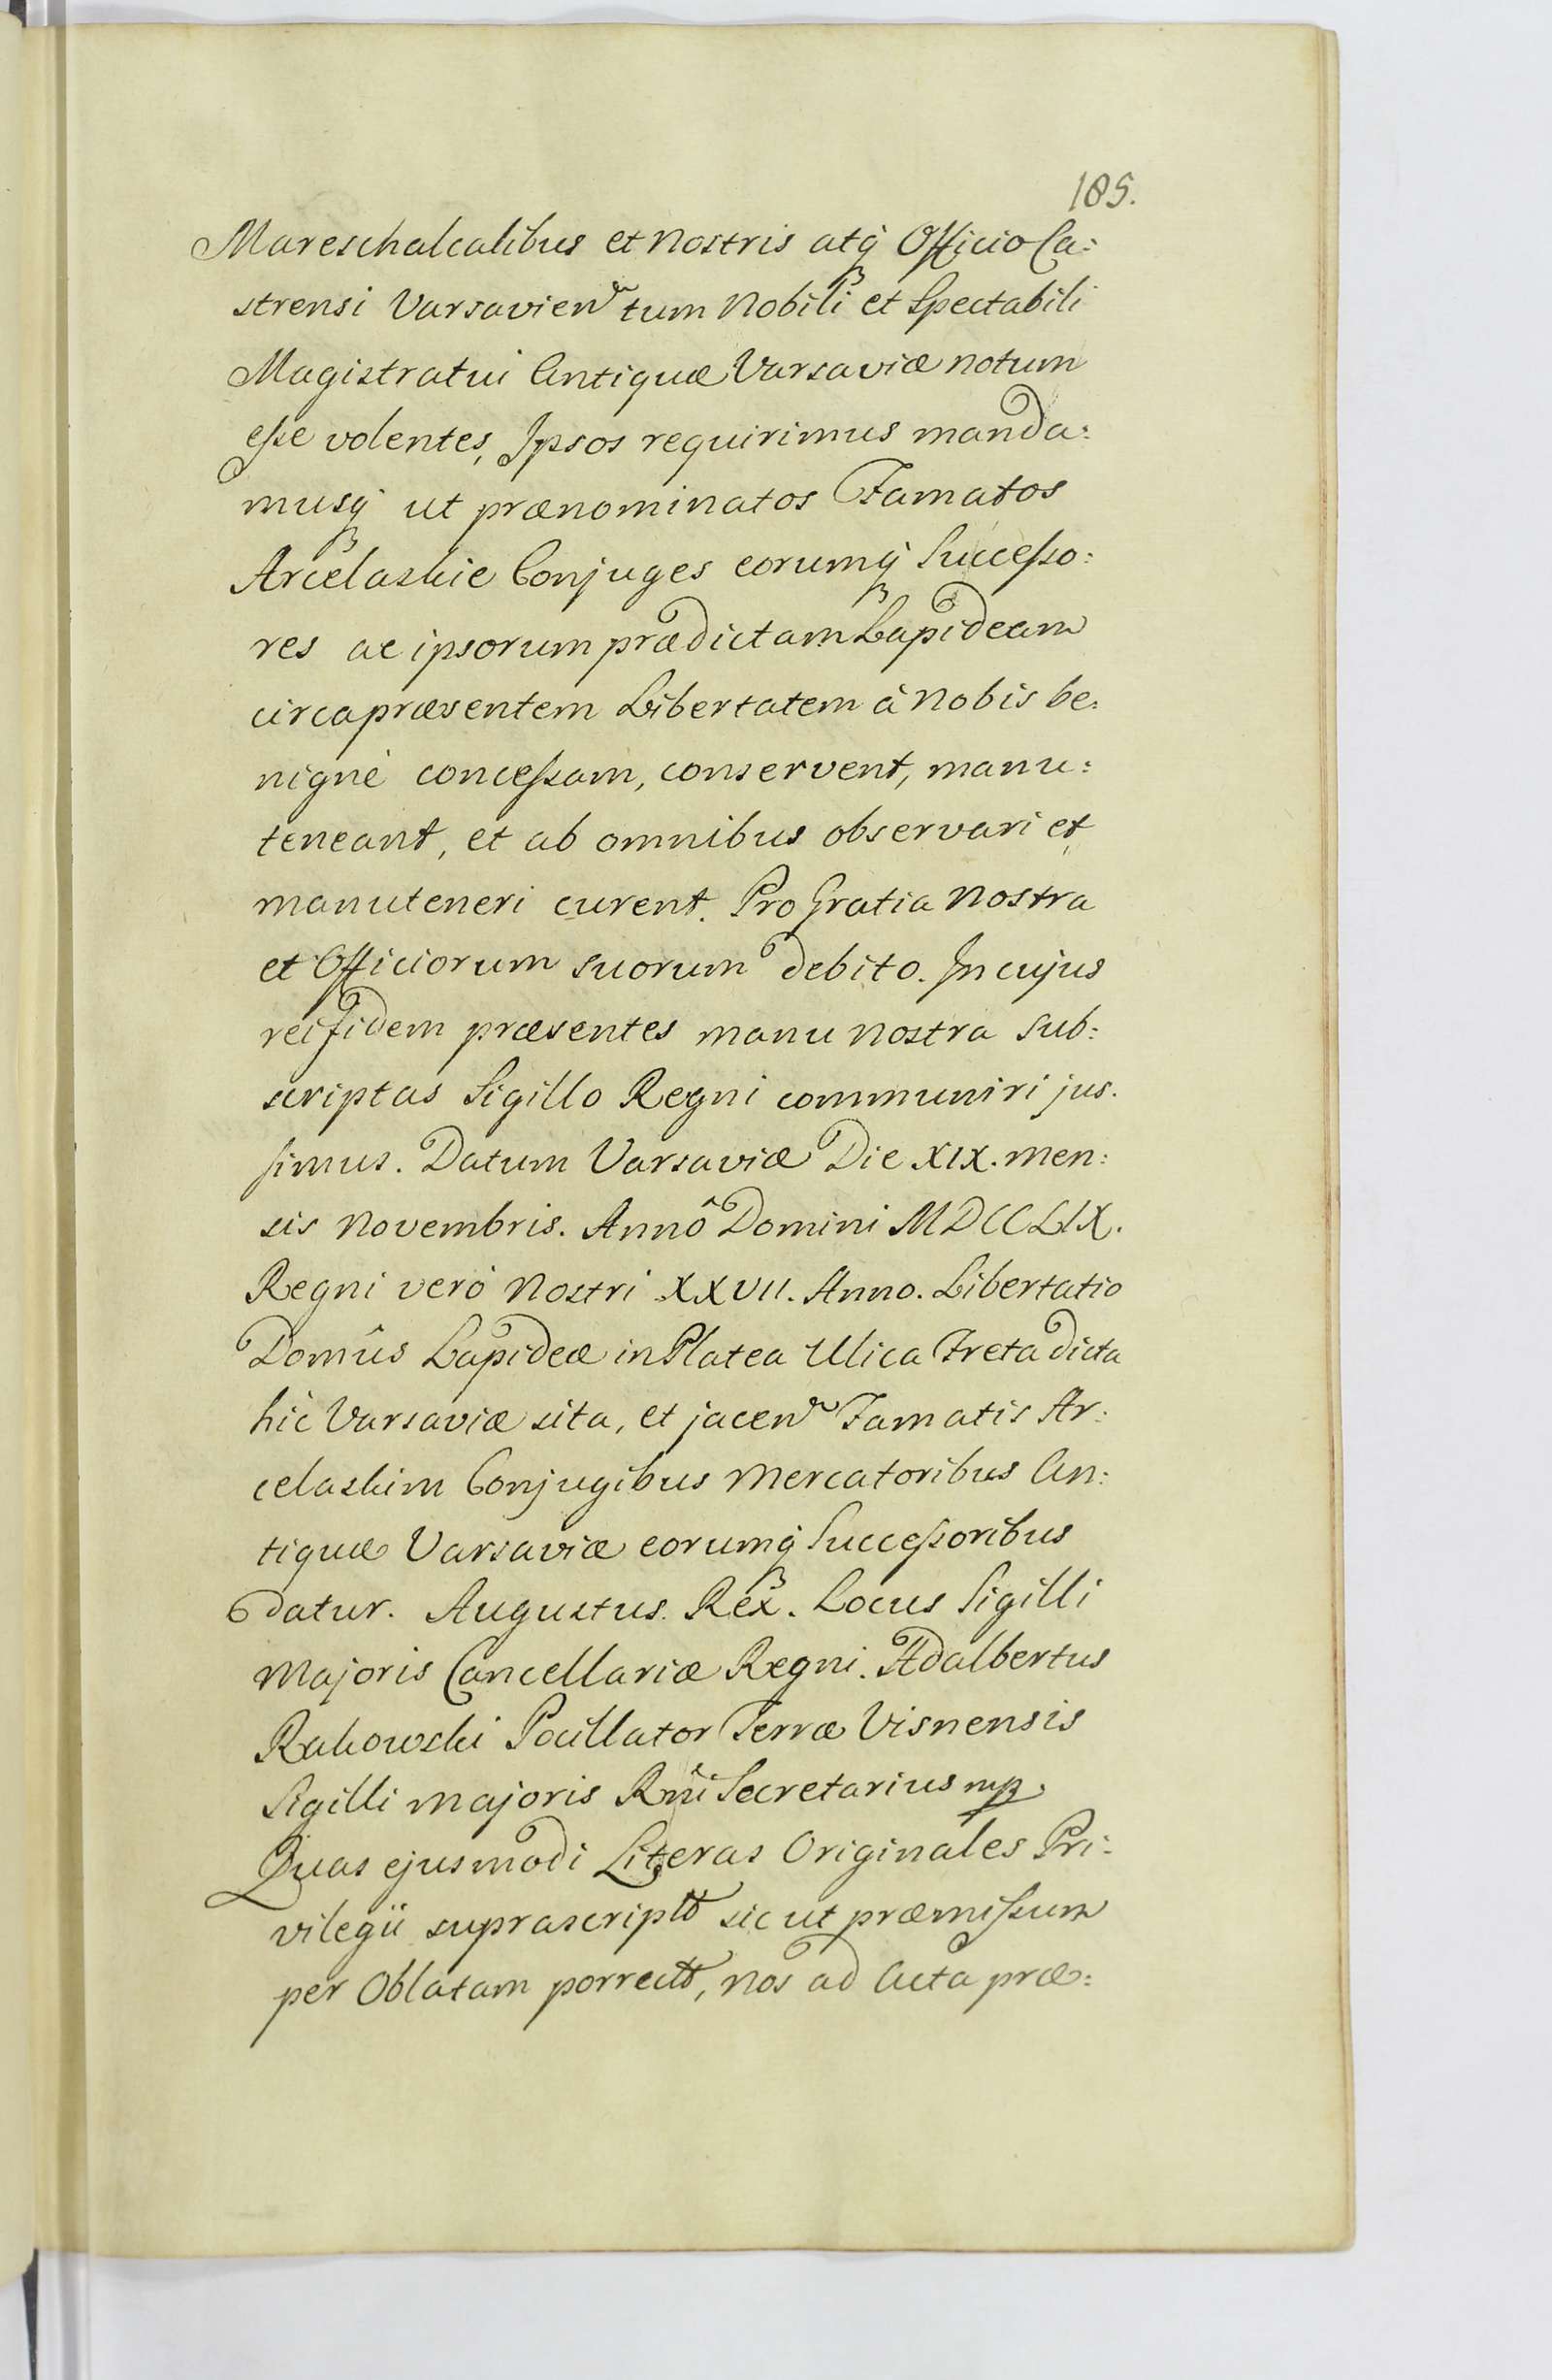 185.
Mareschalcalibus et Nostris atq̢ Officio Ca:
strensi Varsavien tum Nobili et Spectabili
Magistratui Antiquæ Varsaviæ notum
eſse volentes, Ipsos requirimus manda:
musq̢ ut prænominatos Famatos
Arcelaskie Conjuges eorumq̢ Succeſso:
res ac ipsorum prædictam Lapideam
circa præsentem Libertatem à Nobis be:
nignè conceſsam, conservent, manu:
teneant, et ab omnibus observari et
manuteneri curent. Pro Gratia Nostra
et Officiorum suorum debito. In cujus
rei fidem præsentes manu Nostra Sub:
scriptas Sigillo Regni communiri jus.
simus. Datum Varsaviæ Die XIX. Men:
sis Novembris. Annô Domini MDCCLIX.
Regni verò Nostri XXVII. Anno. Libertatio
Domûs Lapideæ in Platea Ulica Freta dicta
hic Varsaviæ sita, et jacen Famatis Ar:
celaskim Conjugibus Mercatoribus An:
tiquæ Varsaviæ eorumq̢ Succeſsoribus
datur. Augustus Rex. Locus Sigilli
Majoris Cancellariæ Regni. Adalbertus
Rakowski Pocillator Terræ Visnensis
Sigilli Majoris Rñi Secretarius mp.
Quas ejusmodi Literas Originales Pri:
vilegii suprascript sic ut præmiſsum
per Oblatam porrect, Nos ad Acta præ: